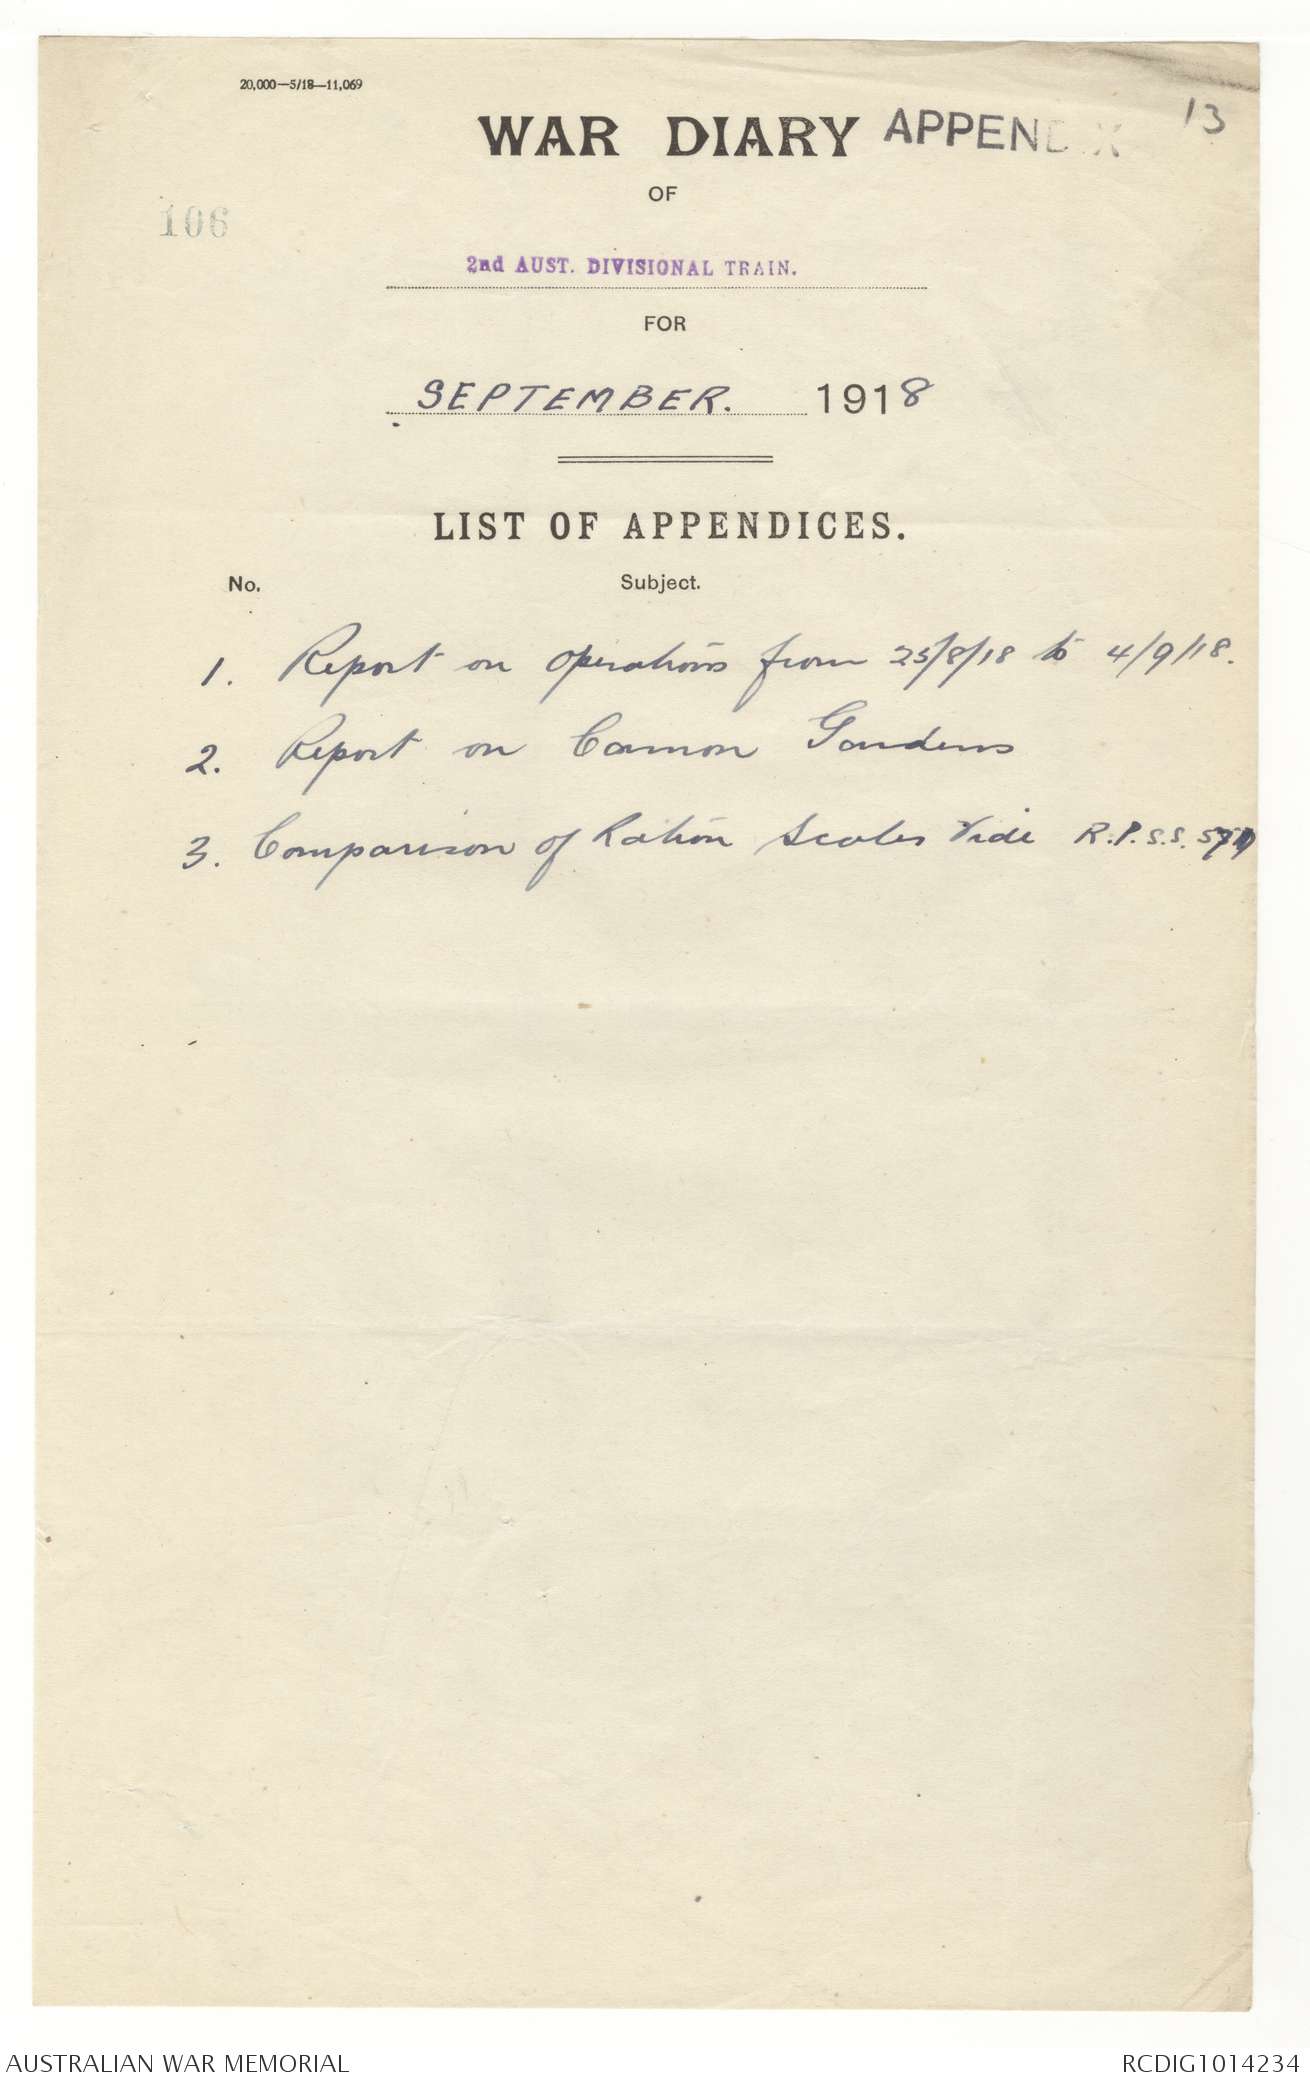 20,000—5/18—11,069
WAR DIARY APPENDIX 13
OF
106
2nd AUST. DIVISIONAL TRAIN.
FOR
SEPTEMBER. 1918
LIST OF APPENDICES.
No. Subject.
1. Report on Operations from 25/8/18 to 4/9/18.
2. Report on Camon Gardens
3. Comparison of Ration Scales Vide R.P.S.S.
AUSTRALIAN WAR MEMORIAL RCDIG1014234